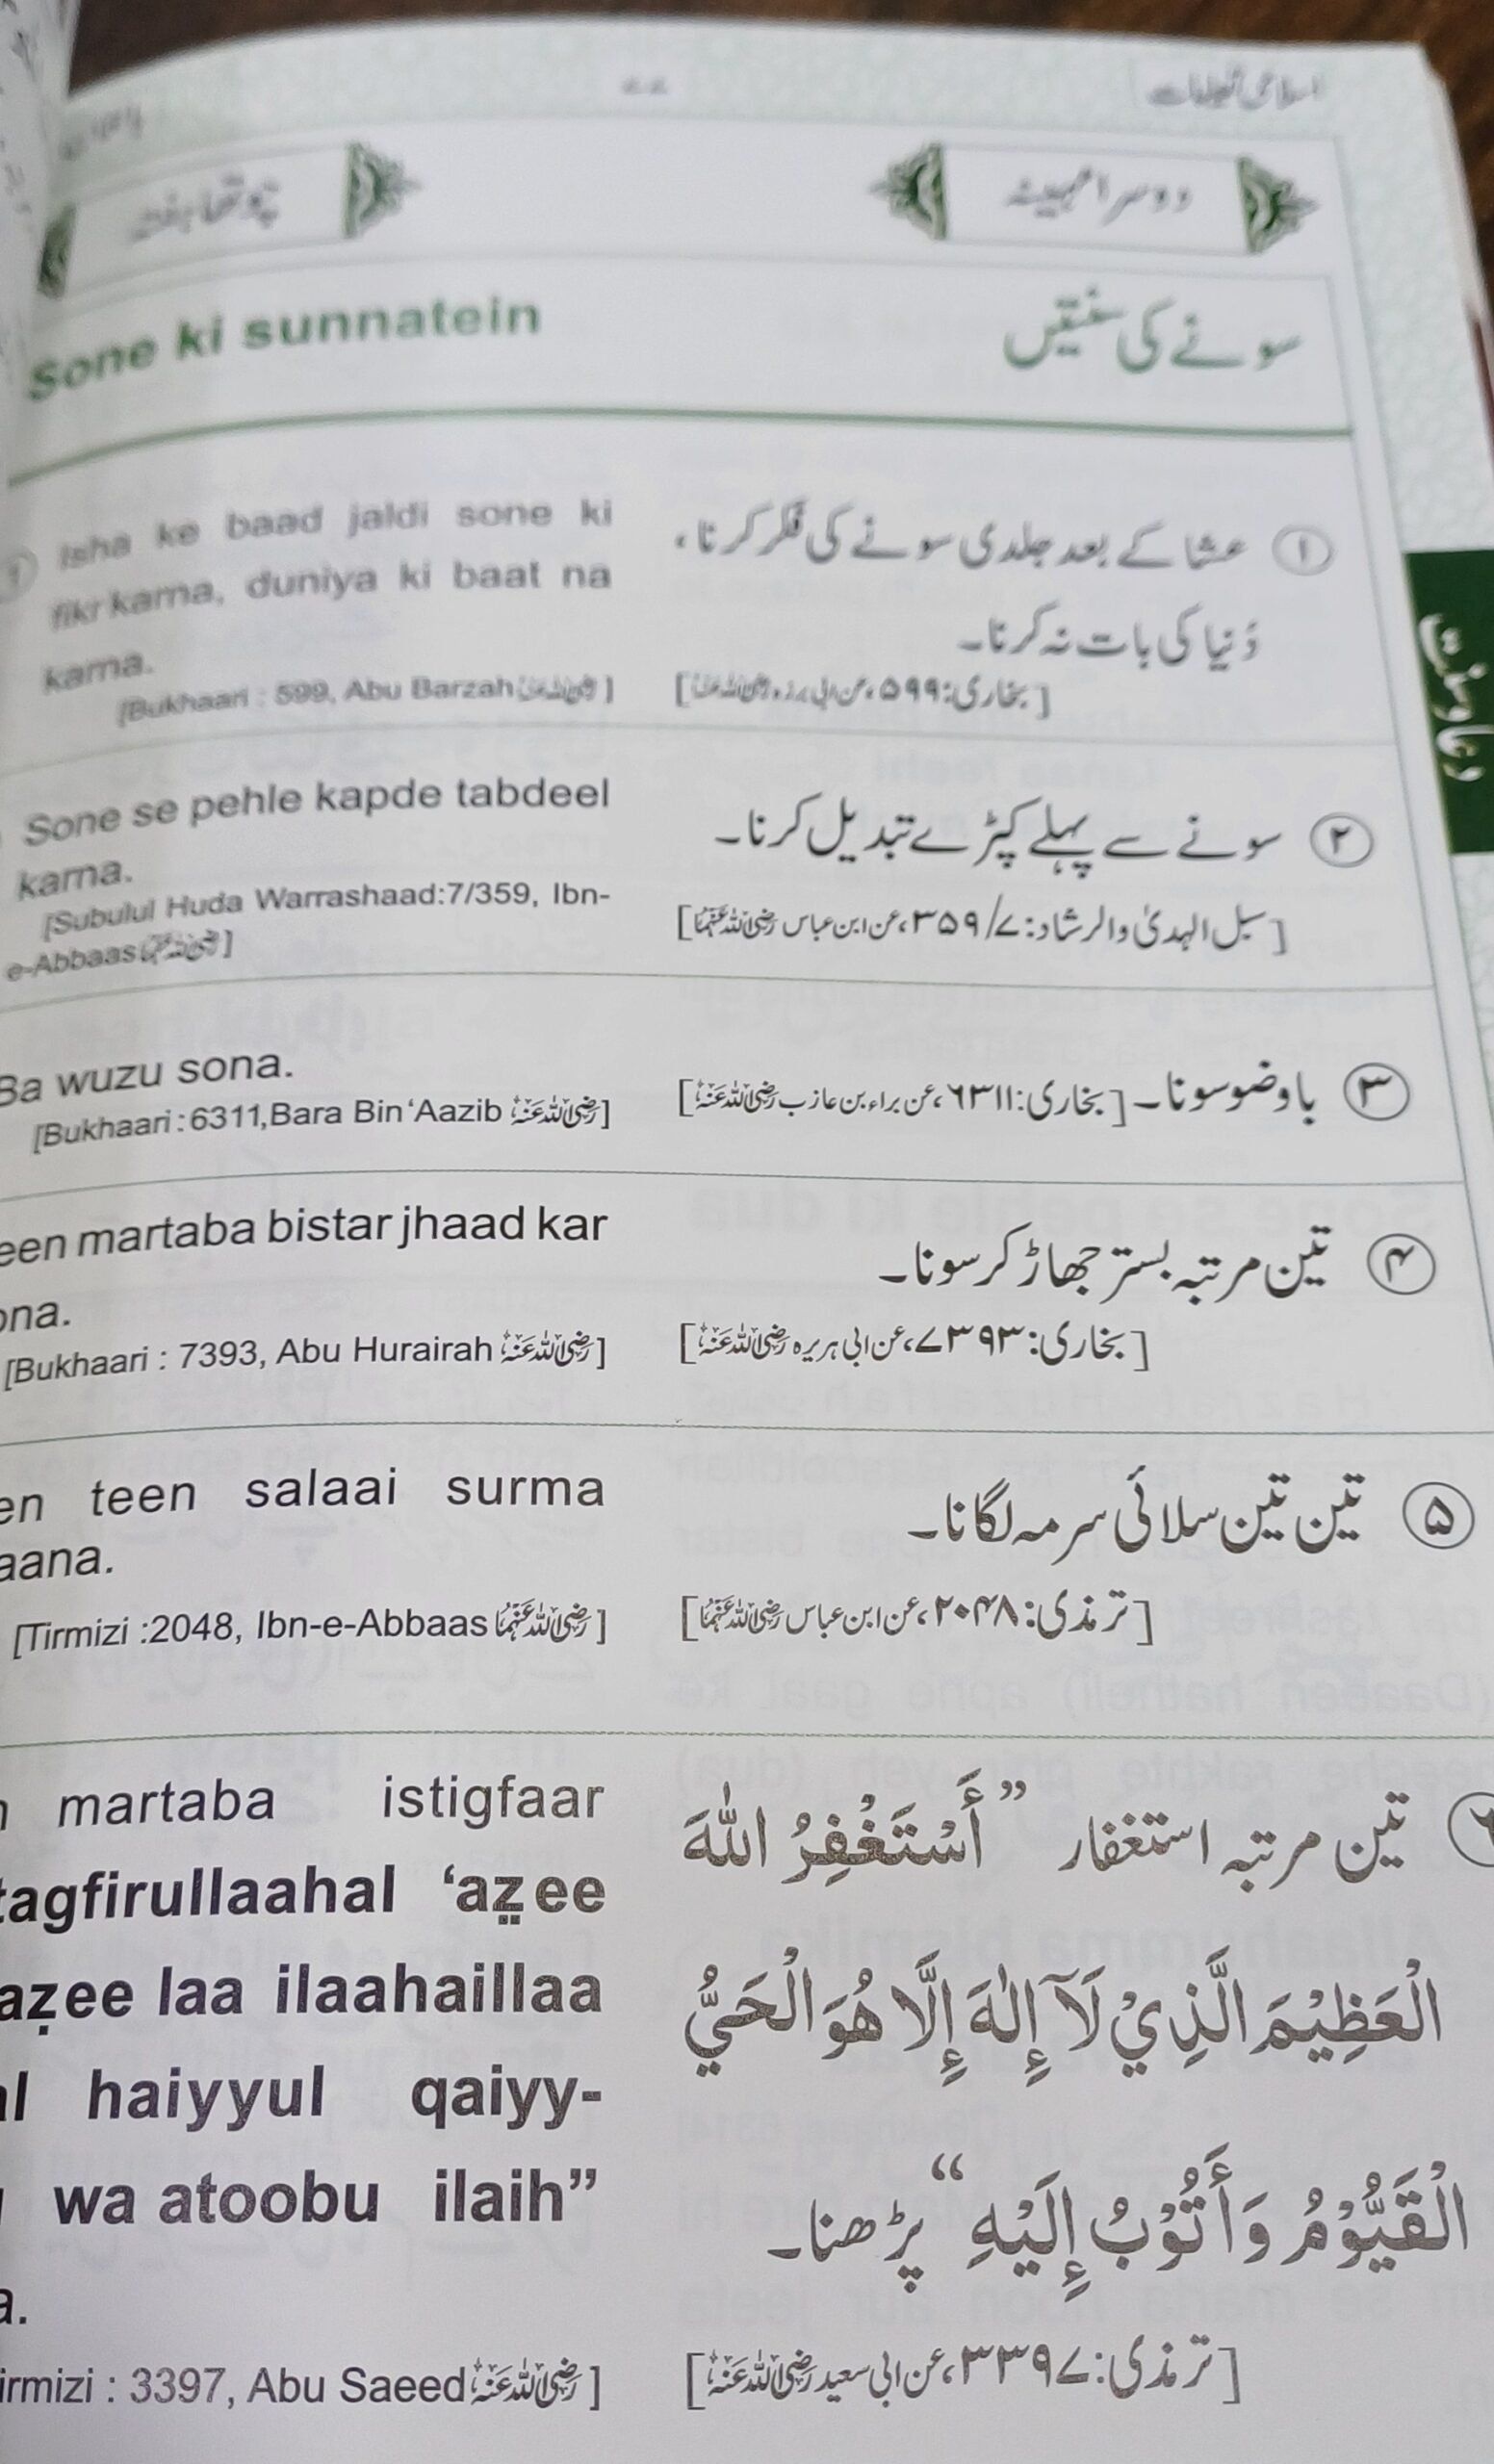 اسلامی تعلیمات
دوسرا مہینہ
چوتھا ہفتہ
Sone ki sunnatein
سونے کی سنتیں
Isha ke baad jaldi sone ki
fikr karna, duniya ki baat na
karna.
[Bukhaari : 599, Abu Barzah رضی اللہ عنہ]
① عشا کے بعد جلدی سونے کی فکر کرنا،
دُنیا کی بات نہ کرنا۔
[بخاری: ۵۹۹، عن ابی برزہ رضی اللہ عنہ]
Sone se pehle kapde tabdeel
karna.
[Subulul Huda Warrashaad:7/359, Ibn-
e-Abbaas رضی اللہ عنہما]
② سونے سے پہلے کپڑے تبدیل کرنا۔
[سبل الہدیٰ والرشاد: ۷/۳۵۹، عن ابن عباس رضی اللہ عنہما]
Ba wuzu sona.
[Bukhaari :6311,Bara Bin ‘Aazib رضی اللہ عنہ]
③ باوضو سونا۔ [بخاری: ۶۳۱۱، عن براء بن عازب رضی اللہ عنہ]
een martaba bistar jhaad kar
ona.
[Bukhaari : 7393, Abu Hurairah رضی اللہ عنہ]
④ تین مرتبہ بستر جھاڑ کر سونا۔
[بخاری: ۷۳۹۳، عن ابی ہریرہ رضی اللہ عنہ]
en teen salaai surma
aana.
[Tirmizi :2048, Ibn-e-Abbaas رضی اللہ عنہما]
⑤ تین تین سلائی سرمہ لگانا۔
[ترمذی: ۲۰۴۸، عن ابن عباس رضی اللہ عنہما]
martaba istigfaar
tagfirullaahal ‘azee
azee laa ilaahaillaa
al haiyyul qaiyy-
wa atoobu ilaih”
a.
irmizi : 3397, Abu Saeed رضی اللہ عنہ]
تین مرتبہ استغفار ”أَسْتَغْفِرُ اللّٰهَ
الْعَظِيْمَ الَّذِيْ لَآ إِلٰهَ إِلَّا هُوَ الْحَيُّ
الْقَيُّوْمُ وَأَتُوْبُ إِلَيْهِ“ پڑھنا۔
[ترمذی: ۳۳۹۷، عن ابی سعید رضی اللہ عنہ]
دعا و سنت